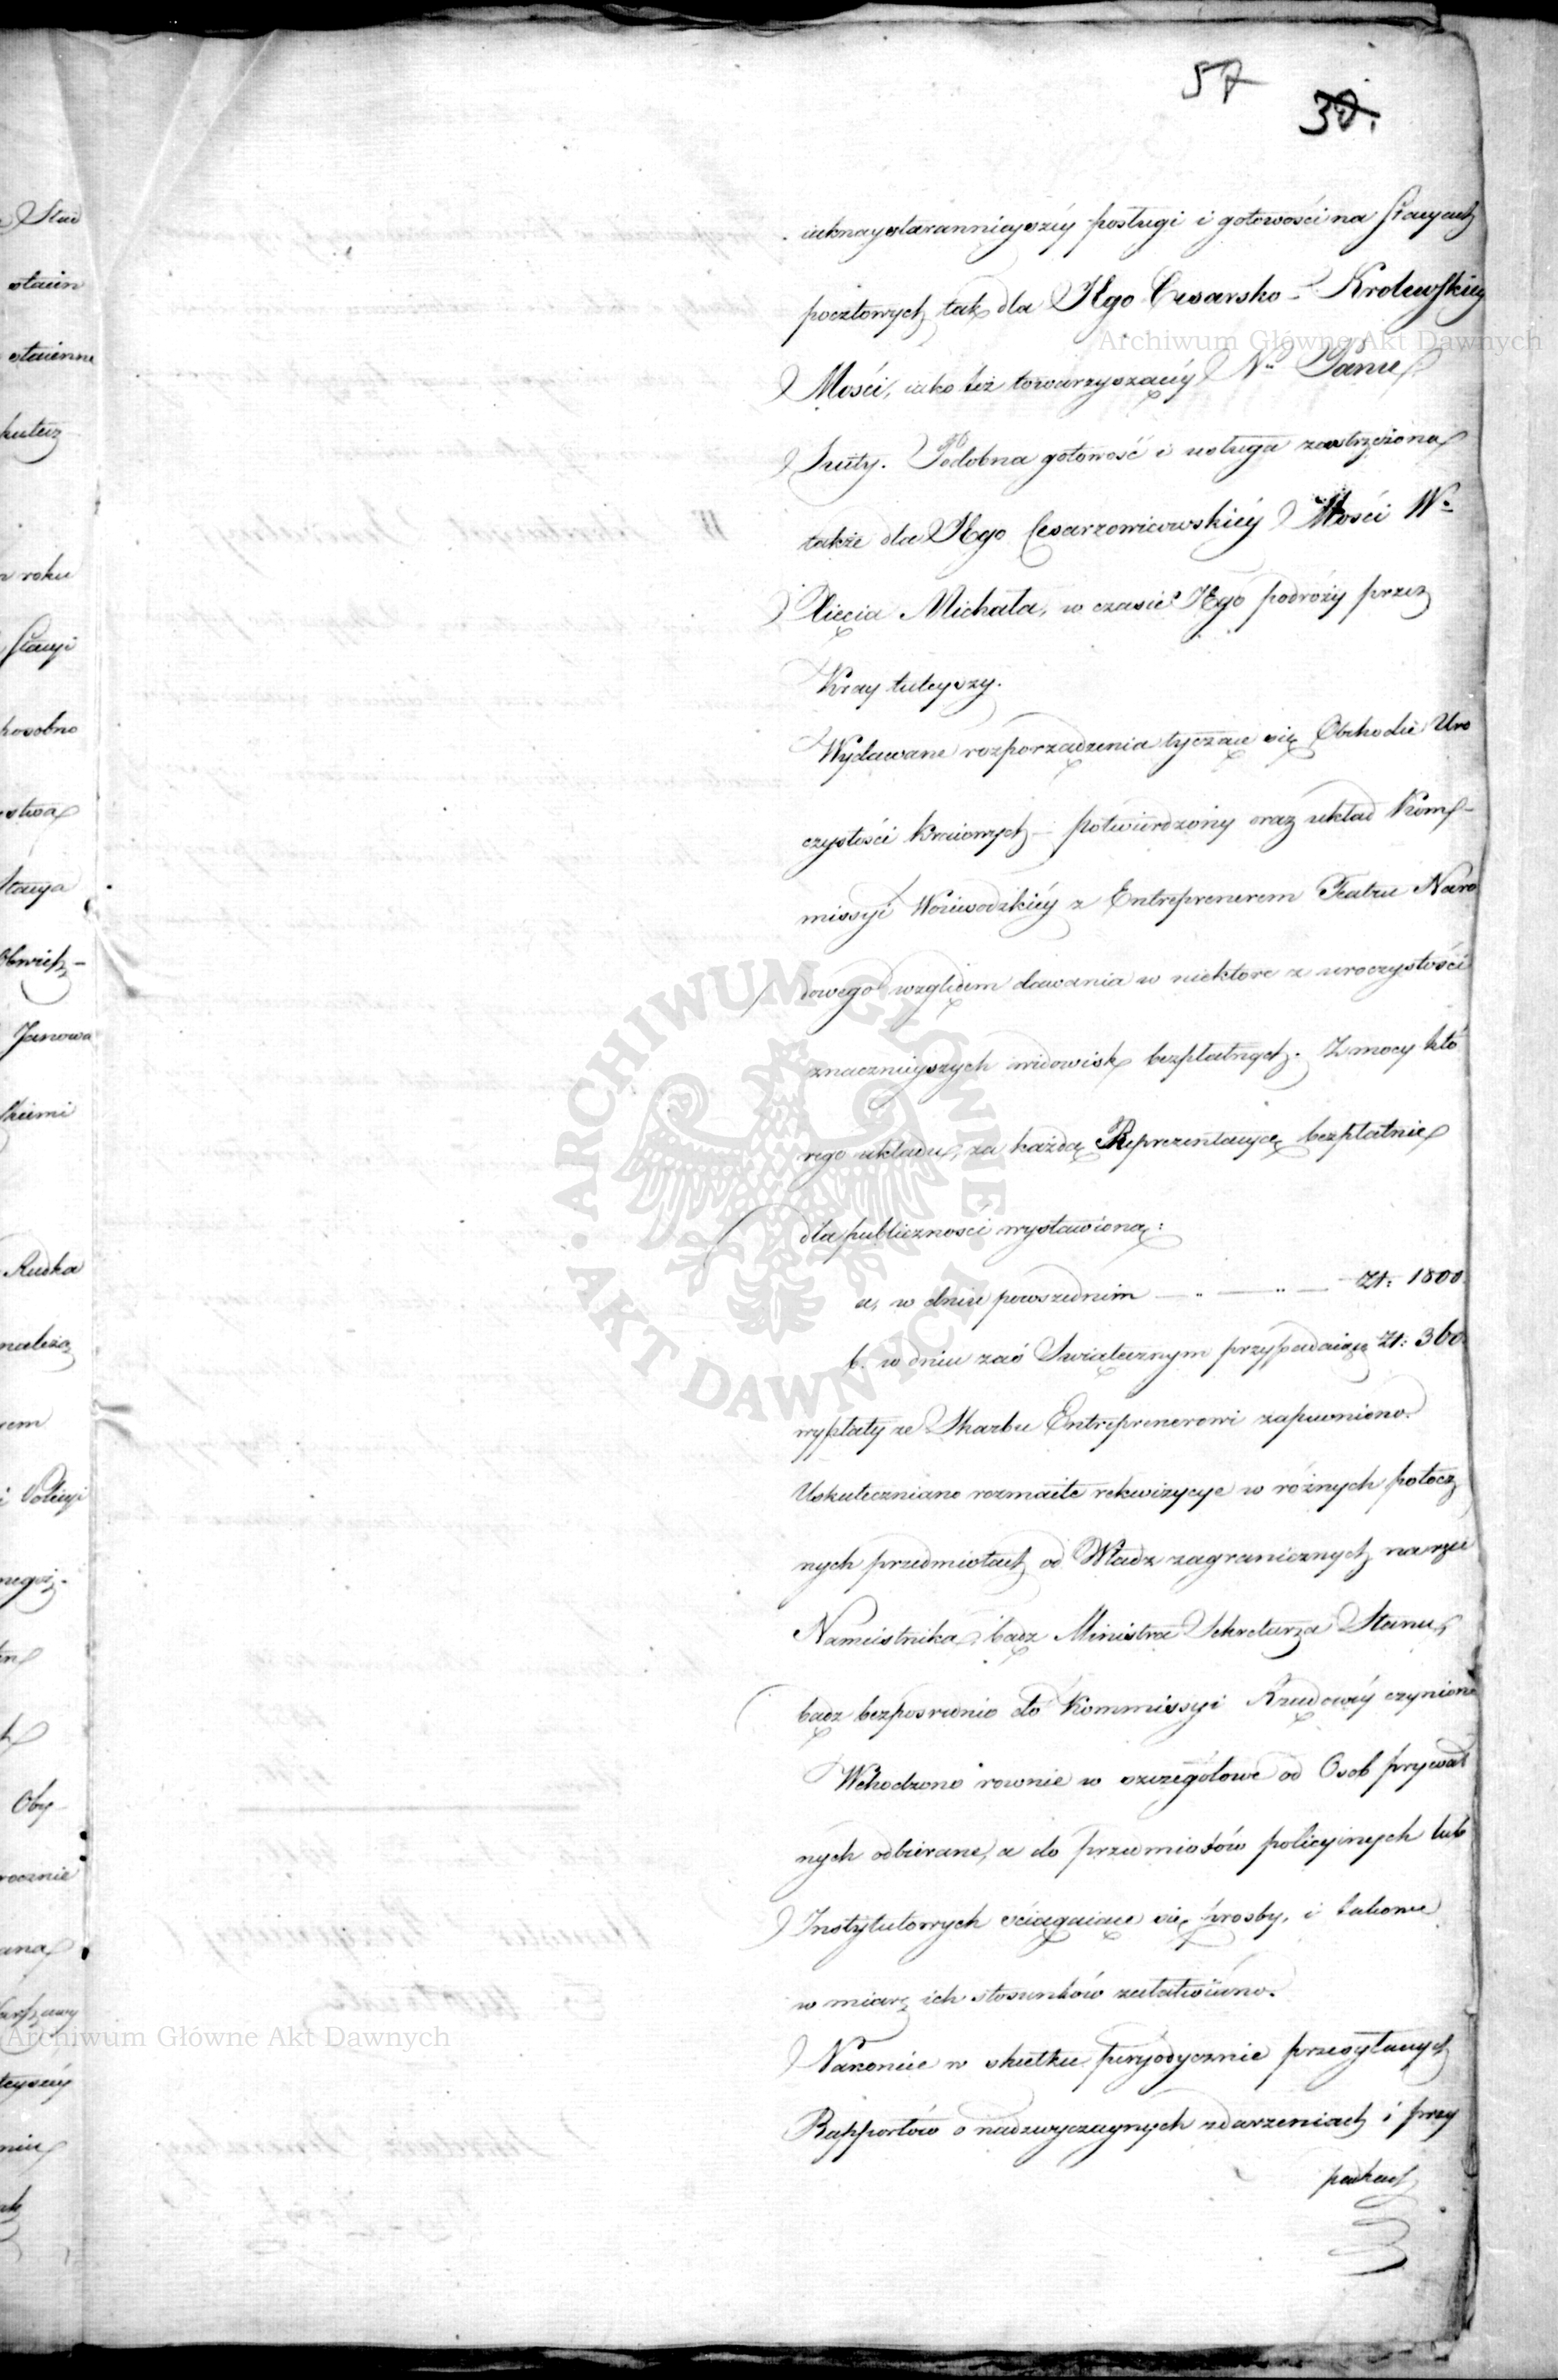 57
39.
iaknaystarannieyszéy posługi i gotowości na stacyach
pocztowych tak dla JEgo Cesarsko-Krolewskiey
Mości, iako też towarzyszącéy Nu Panu
Swity. Podobna gotowość i usługa zastrzeżona
także dla JEgo Cesarzowicowskiéy Mości Wo
Xięcia Michała, w czasie JEgo podróży przez
Kray tuteyszy.
Wydawane rozporządzenia tyczące się Obchodu Uro
czystości kraiowych potwierdzony oraz układ Kom-
missyi Woiewodzkiéy z Entreprenerem Teatru Naro
dowego względem dawania w niektore z uroczystości
znacznieyszych widowisk bezpłatnych. Z mocy któ
rego układu, za każdą Reprezentacyę bezpłatnie
dla publiczności wystawioną:
a, w dniu powszednim — „ — „ — Zł: 1800.
b. w dniu zaś Swiątecznym przypadaiącą Zł: 360
wypłaty ze Skarbu Entreprenerowi zapewniono.
Uskuteczniano rozmaite rekwizycye w różnych potocz
nych przedmiotach od Władz zagranicznych na ręce
Namiestnika, bądz Ministra Sekretarza Stanu,
bądz bezposrednio do Kommissyi Rządowéy czynione
Wchodzono rownie w szczegółowe od Osob prywat
nych odbierane, a do przedmiotów policyinych lub
Instytutowych sciągaiące się prosby, i takowe
w miarę ich stosunków załatwiono.
Nakoniec w skutku peryodycznie przesyłanych
Rapportów o nadzwyczaynych zdarzeniach i przy
padkach
Stad
staien
staienne
kutecz
roku
stacyi
posobno
stwa
Stacya
Obwieś-
Janowa
Rudka
należą
Policyi
Oby
rocznie
Archiwum Główne Akt Dawnych
ARCHIWUM GŁÓWNE
AKT DAWNYCH
Archiwum Główne Akt Dawnych